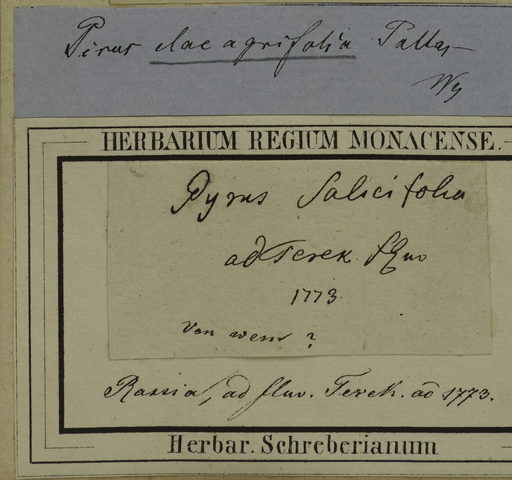 Pirus elaeagrifolia Pallas
HERBARIUM REGIUM MONACENSE.
Pyrus Salicifolia
ad Terek fluv
1773.
Von wem ?
Russia, ad fluv. Terek. aō 1773.
Herbar. Schreberianum